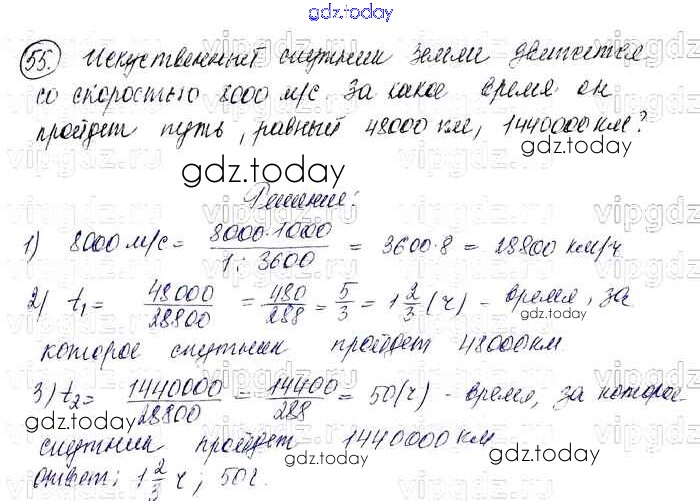 gdz.today
55. Искуственный спутник Земли движется
со скоростью 8000 м/с. За какое время он
пройдет путь, равный 48000 км, 1440000 км?
gdz.today
Решение:
1) 8000 м/с = 8000·1000 / 1:3600 = 3600·8 = 28800 км/ч
gdz.today
2) t₁ = 48000/28800 = 480/288 = 5/3 = 1 2/3 (ч) - время, за
gdz.today
которое спутник пройдет 48000км.
3) t₂ = 1440000/28800 = 14400/288 = 50(ч) - время, за которое
gdz.today
спутник пройдет 1440000 км
gdz.today
ответ: 1 2/3 ч; 50ч.